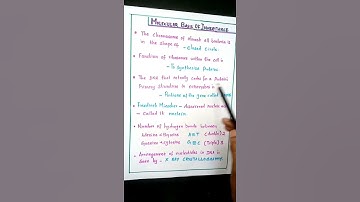 MOLECULAR BASIS OF INHERITANCE
The Chromosome of almost all bacteria is
in the shape of - closed circle
Function of ribosomes within the cell is
- To synthesize Proteins
The DNA that actually codes for a Protein's
Primary structure in eukaryotes is
- Portions of the gene called
Friedrich Miescher - discovered nucleic acid
- Called it nuclein
Number of hydrogen bonds between
Adenine & thymine A = T (double) 2
Guanine & cytosine G ≡ C (Triple) 3
Arrangement of nucleotides in DNA is
Seen by - X RAY CRYSTALLOGRAPHY